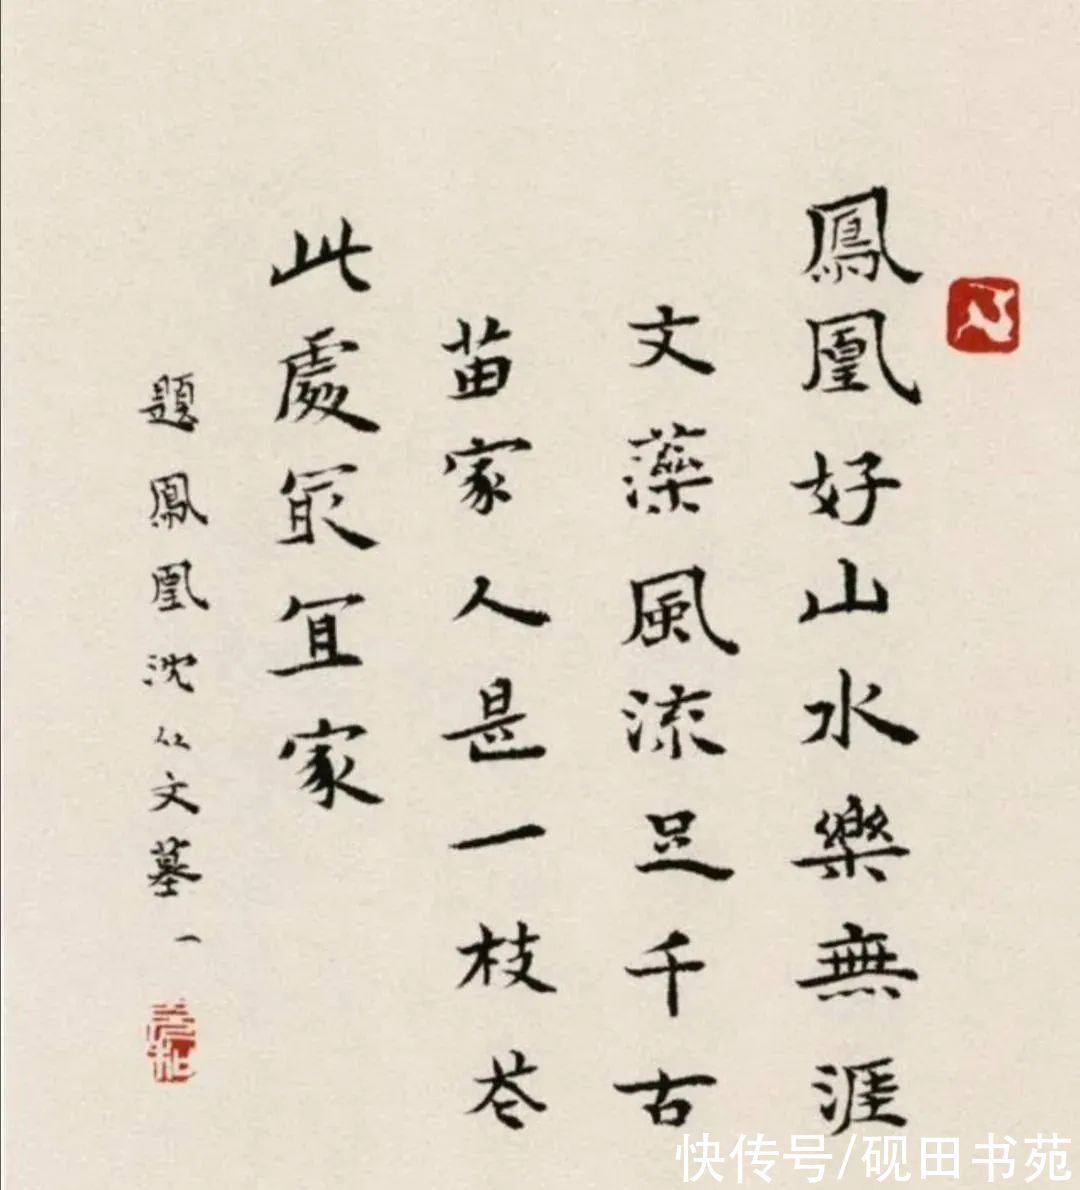 鳳凰好山水樂無涯
文藻風流足千古
苗家人是一枝芲
此處冣冝家
題鳳凰沈从文墓一
快传号/砚田书苑